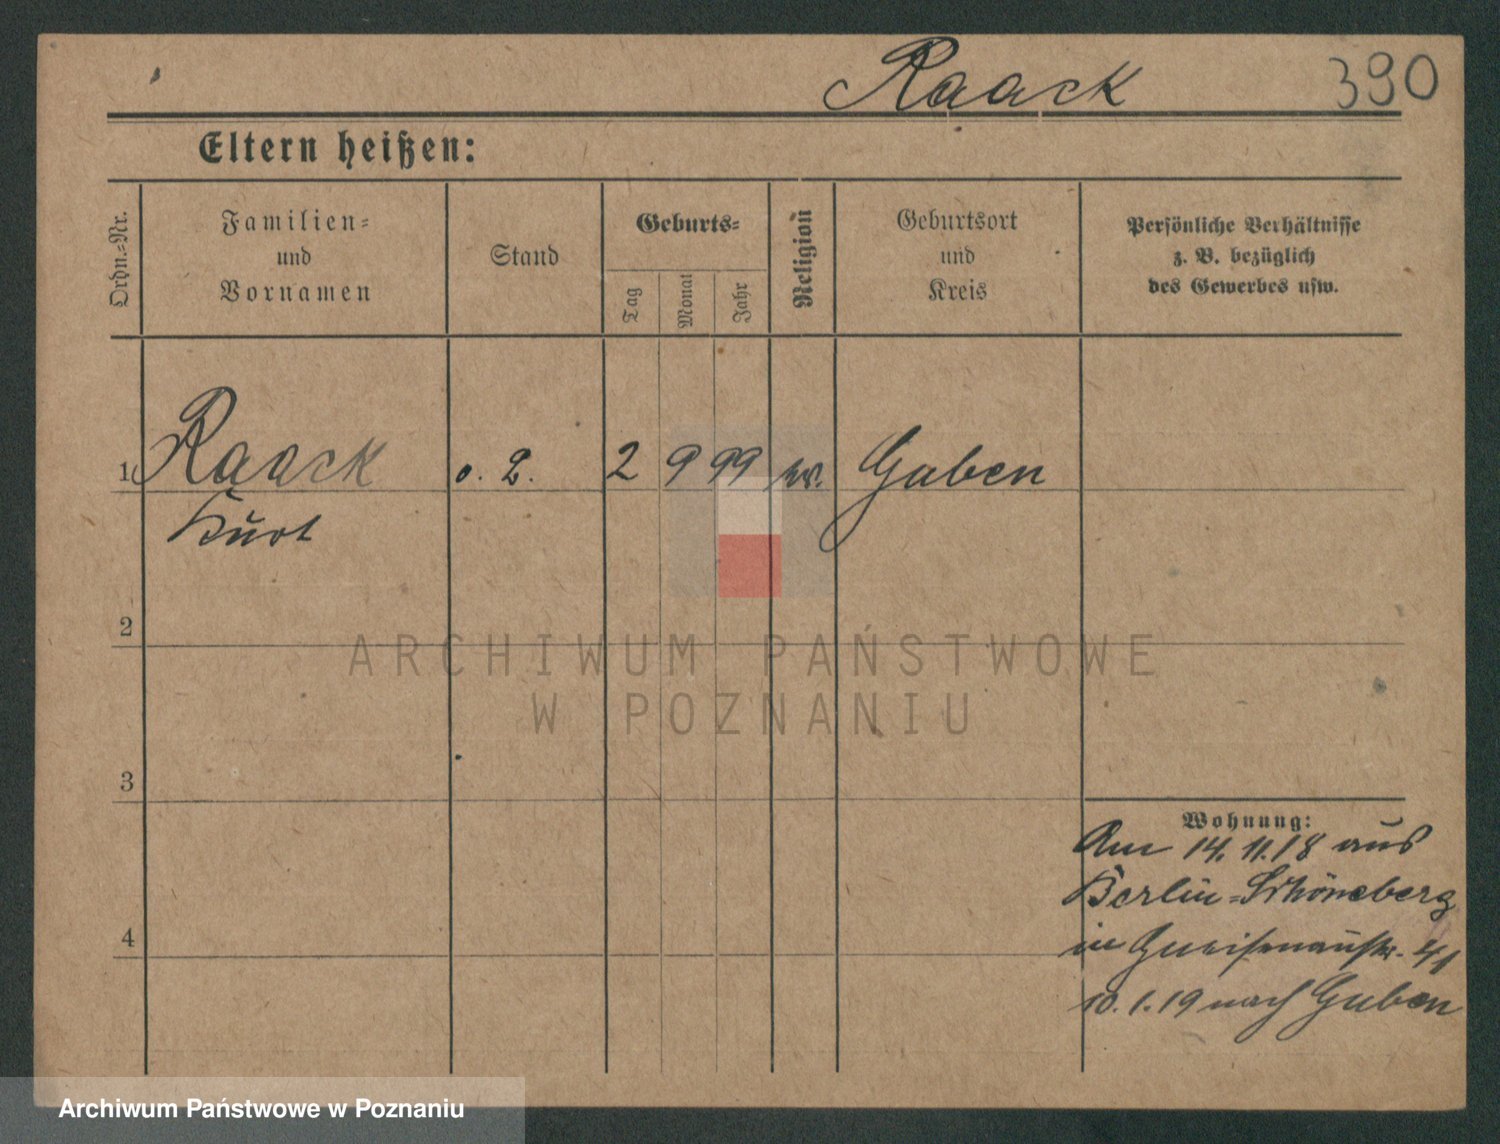 Raack 390
Eltern heißen:
Ordn.-Nr.
Familien-
und
Vornamen
Stand
Geburts-
Tag
Monat
Jahr
Religion
Geburtsort
und
Kreis
Persönliche Verhältnisse
z. B. bezüglich
des Gewerbes usw.
1 Raack o. L. 2 9 99 ev. Guben
Kurt
2
ARCHIWUM PAŃSTWOWE
W POZNANIU
3
Wohnung:
Am 14.11.18 aus
Berlin-Schöneberg
4
in Gneisenaustr. 41
10.1.19 nach Guben
Archiwum Państwowe w Poznaniu